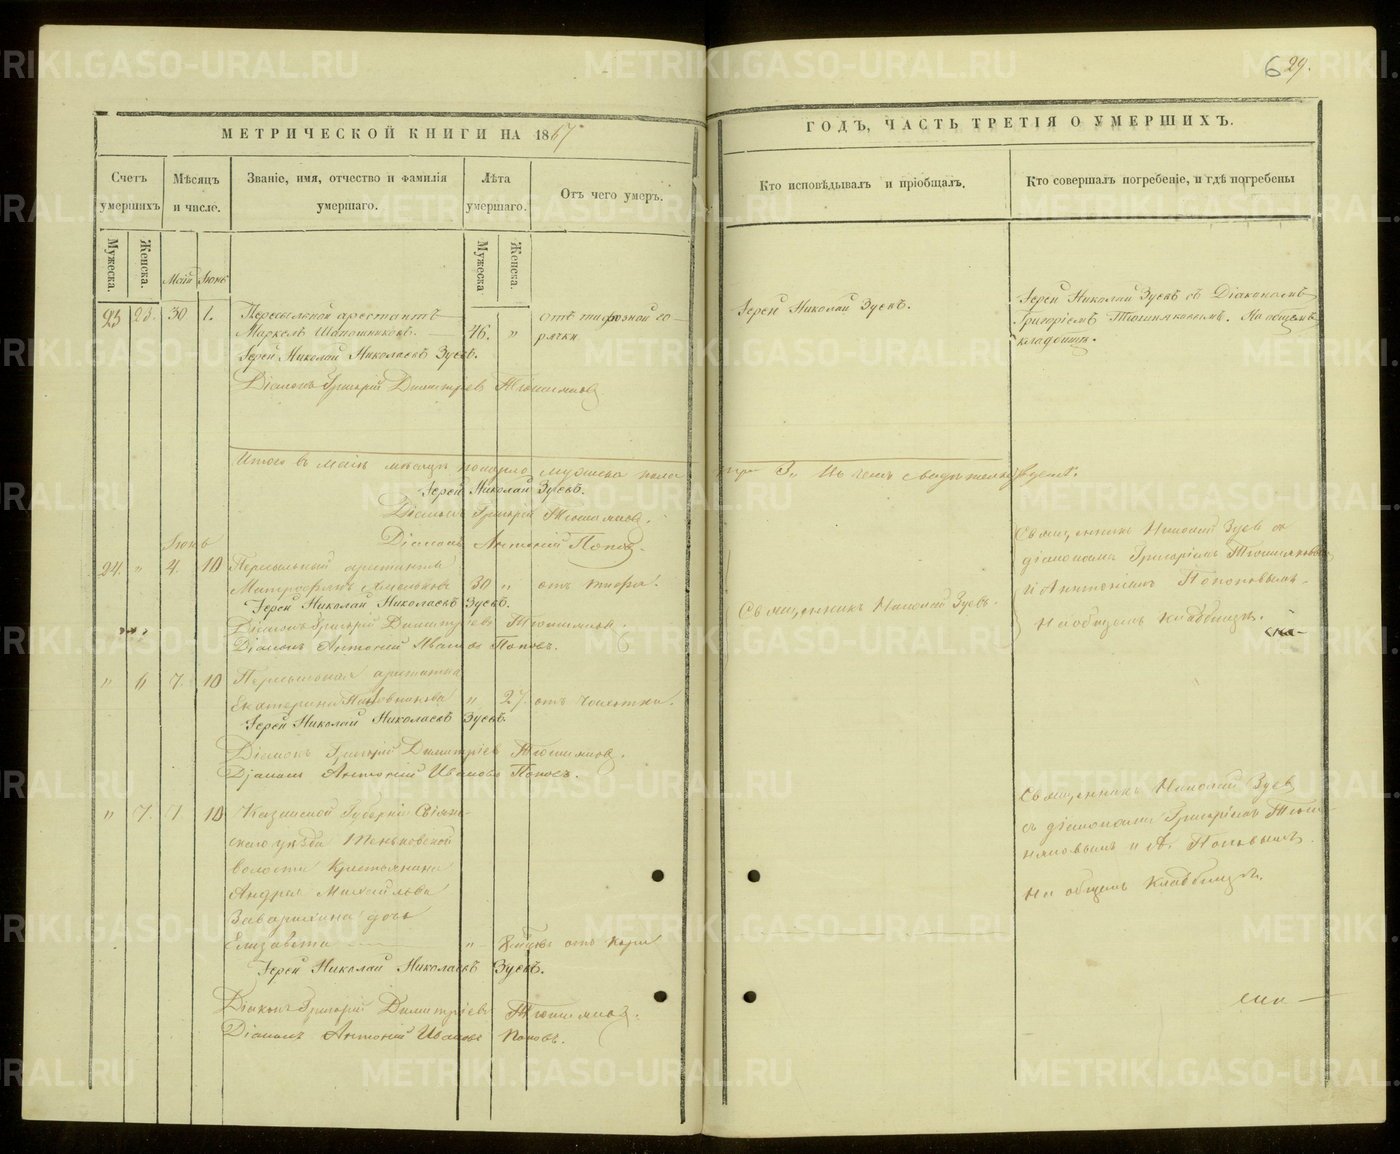 6 29.
МЕТРИЧЕСКОЙ КНИГИ НА 1867
ГОДЪ, ЧАСТЬ ТРЕТІЯ О УМЕРШИХЪ.
Счетъ умершихъ
Мѣсяцъ и числе.
Званіе, имя, отчество и фамилія умершаго.
Лѣта умершаго.
Отъ чего умеръ.
Кто исповѣдывалъ и пріобщалъ.
Кто совершалъ погребеніе, и гдѣ погребены
Мужеска.
Женска.
Май
Іюнь
Мужеска
Женска.
23 30 1. Пересыльной арестантъ
Маркелъ Шапошниковъ. 46. „ отъ тифозной горячки
Іерей Николай Николаевъ Зуевъ.
Діаконъ Григорій Димитріев Тюшняков
Іерей Николай Зуевъ.
Іерей Николай Зуевъ съ Діакономъ
Григоріемъ Тюшняковымъ. На общемъ
кладбищѣ.
Итого въ маіи мѣсяцѣ померло мужеска пола
три 3. Въ чемъ свидѣтельствуемъ.
Іерей Николай Зуевъ.
Діаконъ Григорій Тюшняков.
Діаконъ Антоній Попов.
Іюнь
24. „ 4. 10 Пересыльный арестантъ
30 „ отъ тифа.
Іерей Николай Николаевъ Зуевъ.
Діаконъ Григорій Димитріев Тюшняков.
Діаконъ Антоній Иванов Поповъ.
Священникъ Николай Зуевъ.
Священникъ Николай Зуев съ
діаконами Григоріемъ Тюшняковым
и Антоніемъ Поповымъ.
На общемъ кладбищѣ.
„ 6 7. 10 Пересыльная арестантка
Екатерина „ 27. отъ чахотки.
Іерей Николай Николаевъ Зуевъ.
Діаконъ Григорій Димитріев Тюшняков.
Діаконъ Антоній Иванов Поповъ.
„ 7. 7. 10 Казанской Губерніи Свіяж-
скаго уѣзда Теньковской
волости Крестьянина
Андрея Михайлова
Заварихина дочь
Елизавета „ отъ кори
Іерей Николай Николаевъ Зуевъ.
Діаконъ Григорій Димитріевъ Тюшняков.
Діаконъ Антоній Иванов Поповъ.
Священникъ Николай Зуев
съ діаконами Григоріем Тюш-
няковымъ и А. Поповымъ
На общемъ кладбищѣ.
METRIKI.GASO-URAL.RU